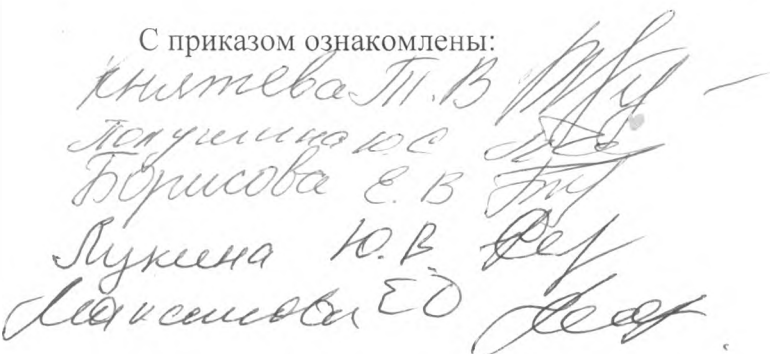 С приказом ознакомлены:
Княжева Т.В
Полушина Ю С
Борисова Е. В
Лукина Ю. В
Максимова Е О